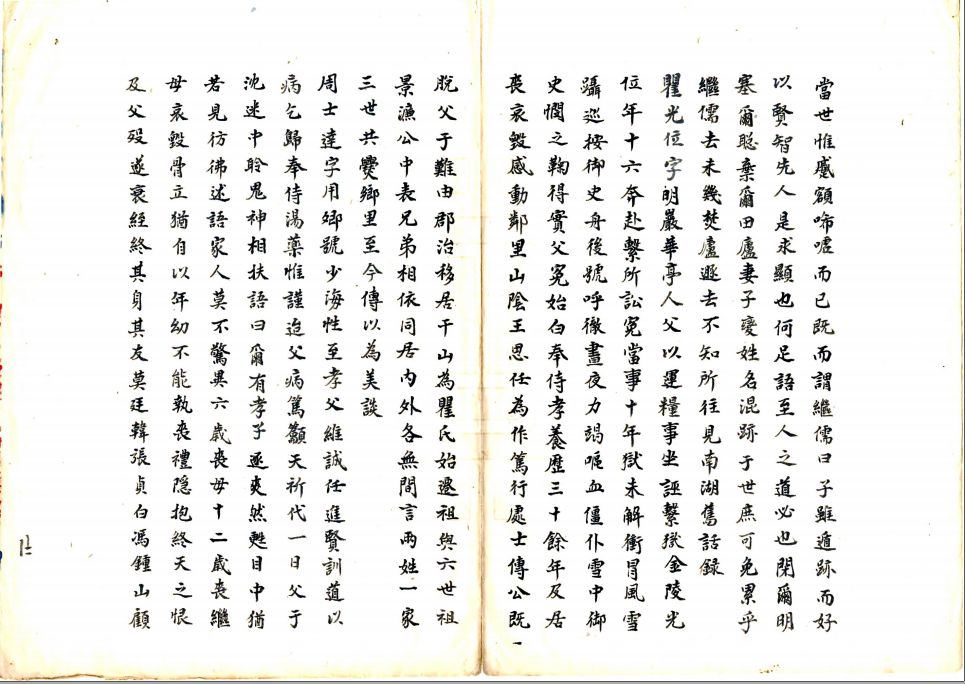 當世惟蹙額啼嘘而已既而謂繼儒曰子雖遁跡而好
以賢智先人是求顯也何足語至人之道必也閉爾明
塞爾聡棄爾田廬妻子變姓名混跡于世庶可免累乎
繼儒去未幾焚廬遯去不知所往見南湖舊話録
瞿光位字明巖華亭人父以運糧事坐誣繫獄金陵光
位年十六奔赴繫所訟寃當事十年獄未解衝冒風雪
躡巡按御史舟後號呼徹晝夜力竭嘔血僵仆雪中御
史憫之鞠得實父寃始白奉侍孝養歴三十餘年及居
喪哀毀感動鄰里山陰王思任為作篤行處士傳公既
脫父于難由郡治移居干山為瞿氏始遷祖與六世祖
景漁公中表兄弟相依同居内外各無間言兩姓一家
三世共爨鄉里至今傳以為美談
周士達字用卿號少海性至孝父維誠任進賢訓道以
病乞歸奉侍湯藥惟謹迨父病篤籲天祈代一日父于
沈迷中聆鬼神相扶語曰爾有孝子逐爽然甦目中猶
若見彷彿述語家人莫不驚異六歲喪母十二歲喪繼
母哀毀骨立猶自以年幼不能執喪禮隱抱終天之恨
及父殁遂衰絰終其身其友莫廷韓張貞白馮鍾山顧